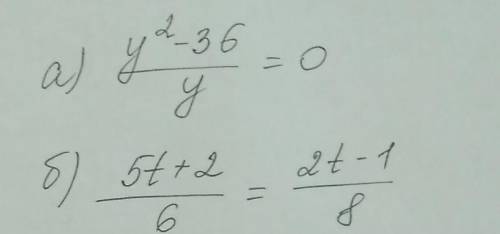 а) (y² - 36)/y = 0
б) (5t + 2)/6 = (2t - 1)/8